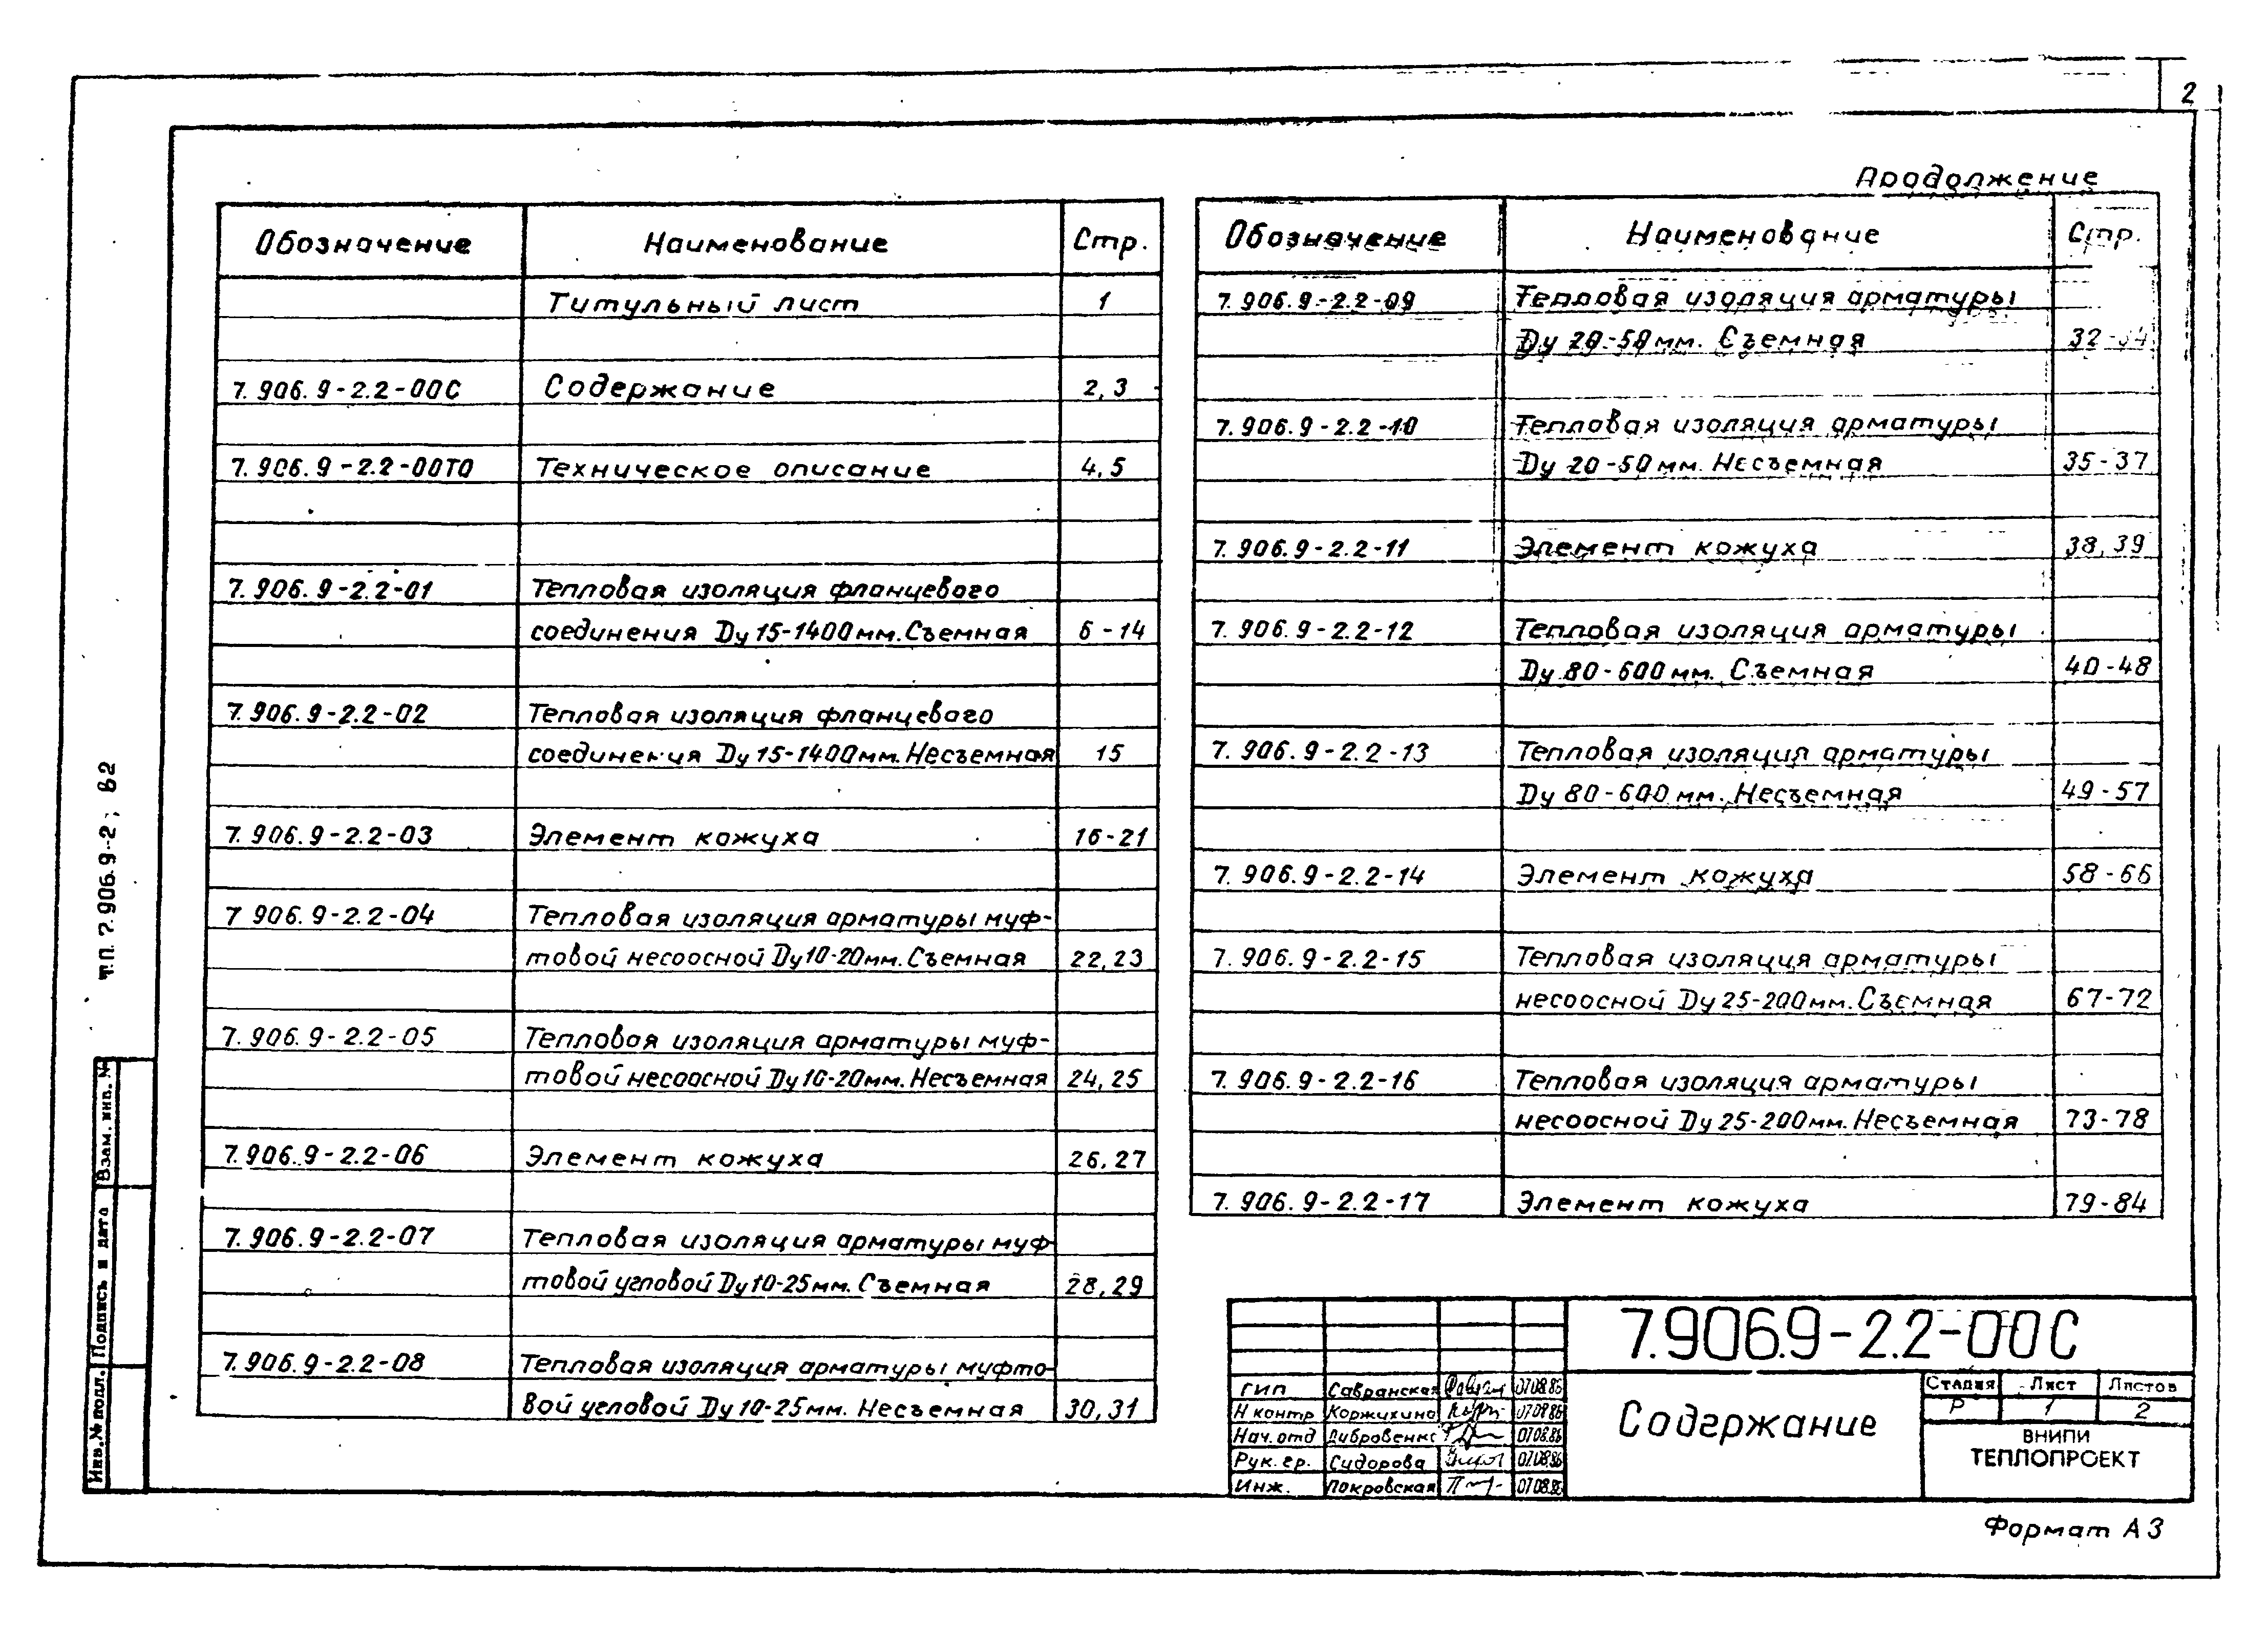 2
Продолжение
Обозначение Наименование Стр.
Титульный лист 1
7.906.9-2.2-00С Содержание 2,3
7.906.9-2.2-00ТО Техническое описание 4,5
7.906.9-2.2-01 Тепловая изоляция фланцевого
соединения Dу 15-1400мм. Съемная 6-14
7.906.9-2.2-02 Тепловая изоляция фланцевого
соединения Dу 15-1400мм. Несъемная 15
7.906.9-2.2-03 Элемент кожуха 16-21
7.906.9-2.2-04 Тепловая изоляция арматуры муф-
товой несоосной Dу 10-20мм. Съемная 22,23
7.906.9-2.2-05 Тепловая изоляция арматуры муф-
товой несоосной Dу 10-20мм. Несъемная 24,25
7.906.9-2.2-06 Элемент кожуха 26,27
7.906.9-2.2-07 Тепловая изоляция арматуры муф-
товой угловой Dу 10-25мм. Съемная 28,29
7.906.9-2.2-08 Тепловая изоляция арматуры муфто-
вой угловой Dу 10-25мм. Несъемная 30,31
Обозначение Наименование Стр.
7.906.9-2.2-09 Тепловая изоляция арматуры
Dу 20-50мм. Съемная 32-34
7.906.9-2.2-10 Тепловая изоляция арматуры
Dу 20-50мм. Несъемная 35-37
7.906.9-2.2-11 Элемент кожуха 38,39
7.906.9-2.2-12 Тепловая изоляция арматуры
Dу 80-600мм. Съемная 40-48
7.906.9-2.2-13 Тепловая изоляция арматуры
Dу 80-600мм. Несъемная 49-57
7.906.9-2.2-14 Элемент кожуха 58-66
7.906.9-2.2-15 Тепловая изоляция арматуры
несоосной Dу 25-200мм. Съемная 67-72
7.906.9-2.2-16 Тепловая изоляция арматуры
несоосной Dу 25-200мм. Несъемная 73-78
7.906.9-2.2-17 Элемент кожуха 79-84
т.п. 7.906.9-2; в2
Взам. инв. №
Подпись и дата
Инв. № подл.
7.906.9-2.2-00С
ГИП Савранская 07.08.86
Н контр Коржихина 07.08.86
Нач. отд Дибровенко 07.08.86
Рук. гр. Сидорова 07.08.86
Инж. Покровская 07.08.86
Содержание
Стадия Лист Листов
Р 1 2
ВНИПИ
ТЕПЛОПРОЕКТ
Формат А3